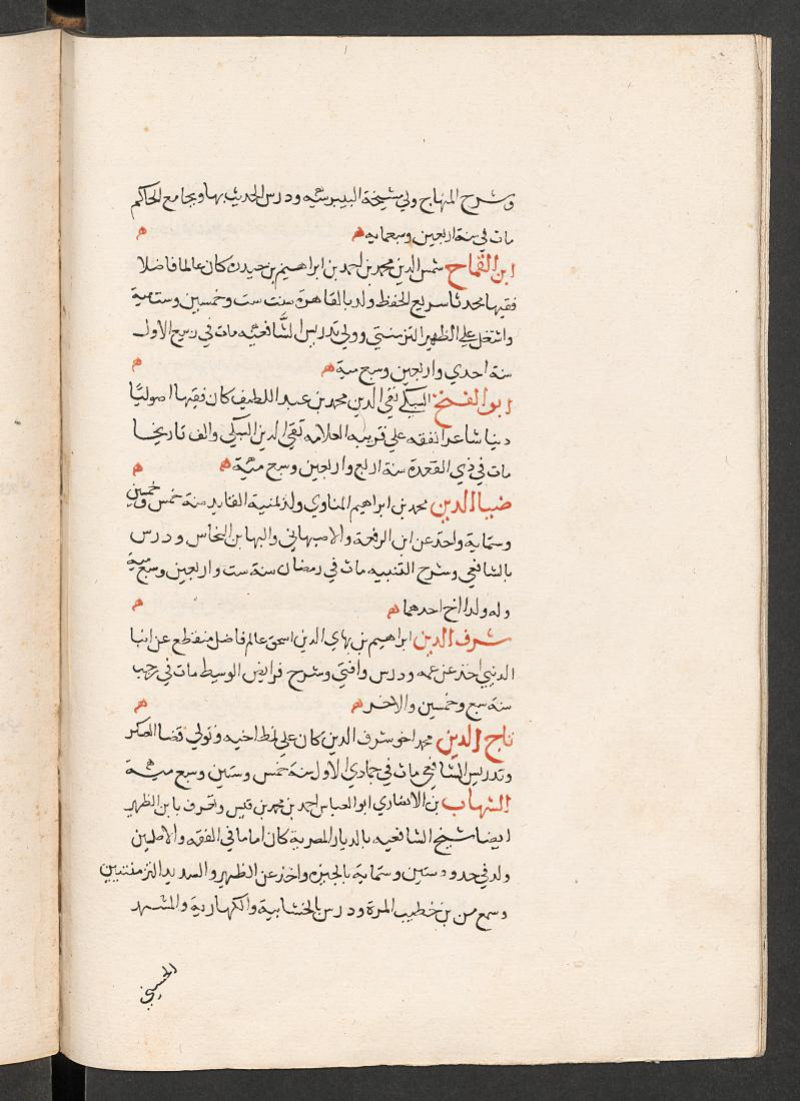 وشرح المنهاج وولي مشيخة البيبرسيه ودرس الحديث بها وبجامع الحاكم
مات في سنة اربعين وسبعمايه ه ه
ابن القماح شمس الدين محمد بن احمد بن ابراهيم بن حيدرة كان عالما فاضلا
فقيها محدثا سريع الحفظ ولد بالقاهرة سنت ست وخمسين وستمية
واشتغل علي الظهير التزمنتي وولي تدريس الشافعيه مات في ربيع الاول
سنة احدي واربعين وسبع مية ه ه
ابو الفتح السبكي تقي الدين محمد بن عبد اللطيف كان فقيها اصوليا
دينا شاعرا تفقه علي قريبه العلامه تقي الدين السبكي والف تاريخا
مات في ذي القعدة سنة اربع واربعين وسبع مئية ه ه
ضيا الدين محمد بن ابراهيم المناوي ولد بمنية القايد سنة خمس وخمسين
وستماية واخذ عن ابن الرفعة والاصبهاني والبها بن النحاس ودرس
بالشافعي وشرح التنبيه مات في رمضان سنة ست واربعين وسبع مية
وله ولدا اخ احدهما ه ه
شرف الدين ابراهيم بن بهاي الدين اسحق عالم فاضل منقطع عن ابنا
الدنيي اخذ عن عمه ودرس وافتي وشرح فرايض الوسيط مات في رجب
سنة سبع وخمسين والاخر ه ه
تاج الدين محمد اخو شرف الدين كان علي نمط اخيه وتولي قضا العسكر
وتدريس الشافعي مات في جمادي الاول سنة خمس وستين وسبع مئية
الشهاب بن الانصاري ابو العباس احمد بن محمد بن قيس وتعرف بابن الظهير
ايضا شيخ الشافعيه بالديار المصرية كان اماما في الفقه والاصلين
ولد في حدود ستين وستماية بالجيزه واخذ عن الظهير والسديد التزمنتيين
وسمع من بن خطيب المزة ودرس بالخشابية والكهارية والمشهد
الحسيني